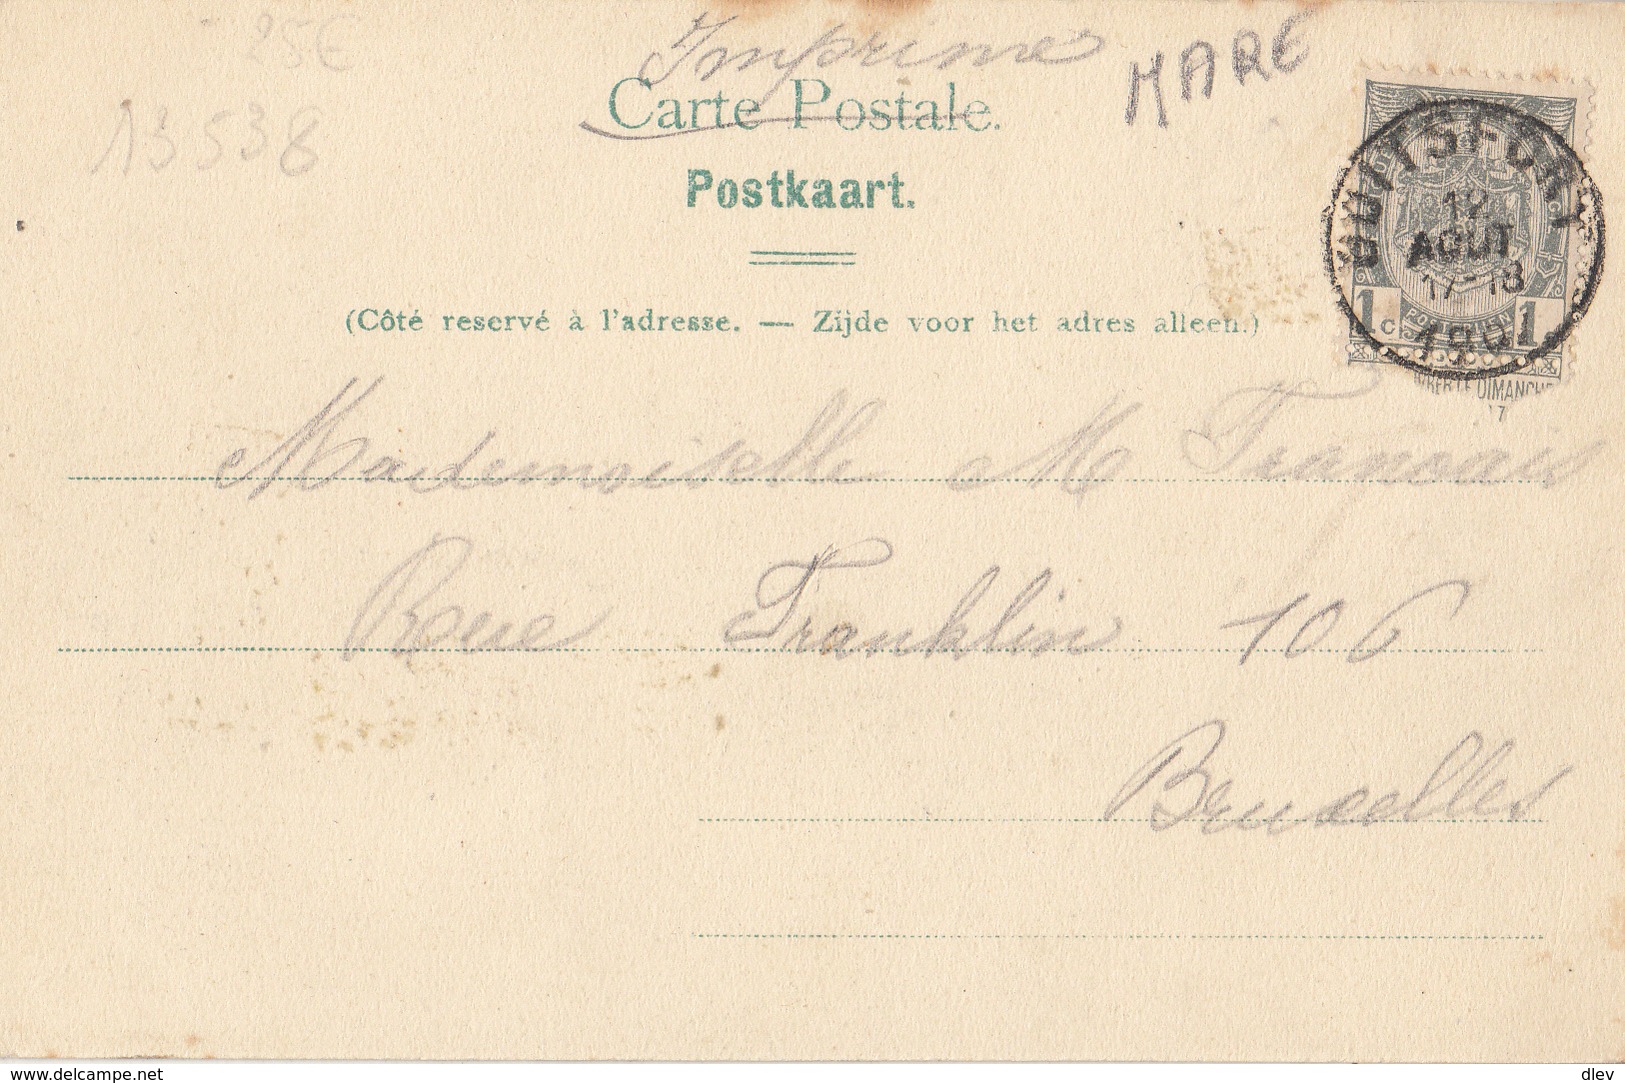 25€
13538
Imprimés
MARE
Carte Postale.
Postkaart.
(Côté reservé à l'adresse. — Zijde voor het adres alleen.)
BOITSFORT
12
AOUT
17-18
1901
1c 1c
POSTERIJEN
DIMANCHE
Mademoiselle M Français
Rue Franklin 106
Bruxelles
www.delcampe.net
dlev